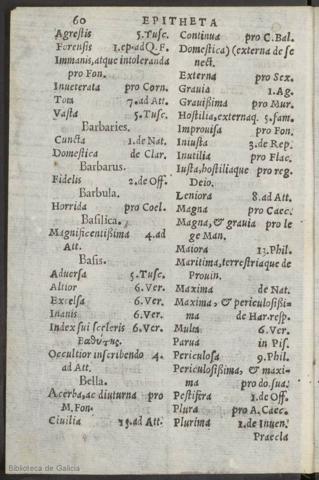 60 EPITHETA
Agrestis 5.Tusc.
Forensis 1.ep.ad Q.F.
Immanis, atque intoleranda
pro Fon.
Inueterata pro Corn.
Tota 7.ad Att.
Vasta 5.Tusc.
Barbaries.
Cuncta 1.de Nat.
Domestica de Clar.
Barbarus.
Fidelis 2.de Off.
Barbula.
Horrida pro Coel.
Basilica.
Magnificentißima 4.ad
Att.
Basis.
Aduersa 5.Tusc.
Altior 6.Ver.
Excelsa 6.Ver.
Inanis 6.Ver.
Index sui sceleris 6.Ver.
Βαθύτης.
Occultior in scribendo 4.
ad Att.
Bella.
Acerba, ac diuturna pro
M.Fon.
Ciuilia 15.ad Att.
Continua pro C.Bal.
Domestica) (externa de se
nect.
Externa pro Sex.
Grauia 1.Ag.
Grauißima pro Mur.
Hostilia, externaq. 5.fam.
Improuisa pro Fon.
Iniusta 3.de Rep.
Inutilia pro Flac.
Iusta, hostiliaque pro reg.
Deio.
Leniora 8.ad Att.
Magna pro Caec.
Magna, & grauia pro le
ge Man.
Maiora 13.Phil.
Maritima, terrestriaque de
Prouin.
Maxima de Nat.
Maxima, & periculosißi-
ma de Har.resp.
Multa 6.Ver.
Parua in Pis.
Periculosa 9.Phil.
Periculosißima, & maxi-
ma pro do.sua.
Pestifera 1.de Off.
Plura pro A.Caec.
Plurima 1.de Inuen.
Praecla
Biblioteca de Galicia